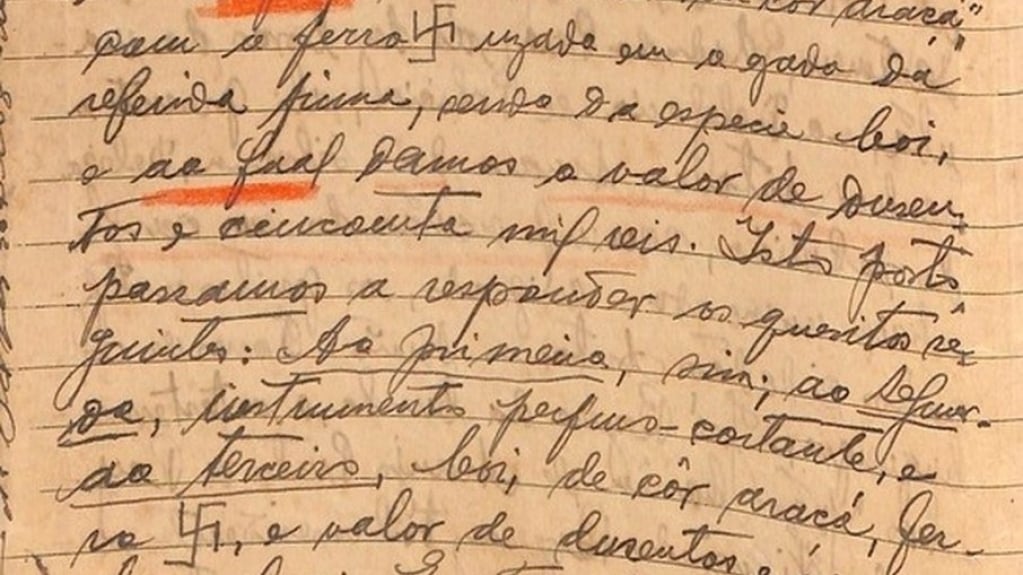 côr araçá"
com o ferro 卐 uzada em o gado da
referida firma, sendo da especie boi,
e ao qual damos o valor de duzen-
tos e cincoenta mil reis. Isto posto
passamos a responder os quesitos se-
guintes: Ao primeiro, sim; ao segun-
do, instrumento perfuro-cortante, e
ao terceiro, boi, de côr araçá, fer-
ro 卐, e valor de duzentos e